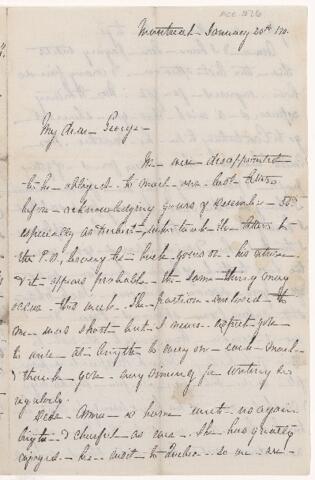 Montreal - January 20th /70.
My dear George -
We were disappointed
to be obliged to mail our last letters
before acknowledging yours of December 30th
especially as Herbert undertook the letters to
the P.O, having the book govr on his return
& it appears probable the same thing may
occur this week. The portion enclosed to
me was short but I never expect you
to write at length to every one each mail
& thank you any summing for writing so
regularly.
Dear Anna is home with us again
bright & cheerful as ever. She has greatly
enjoyed her visit to Quebec - so we are -